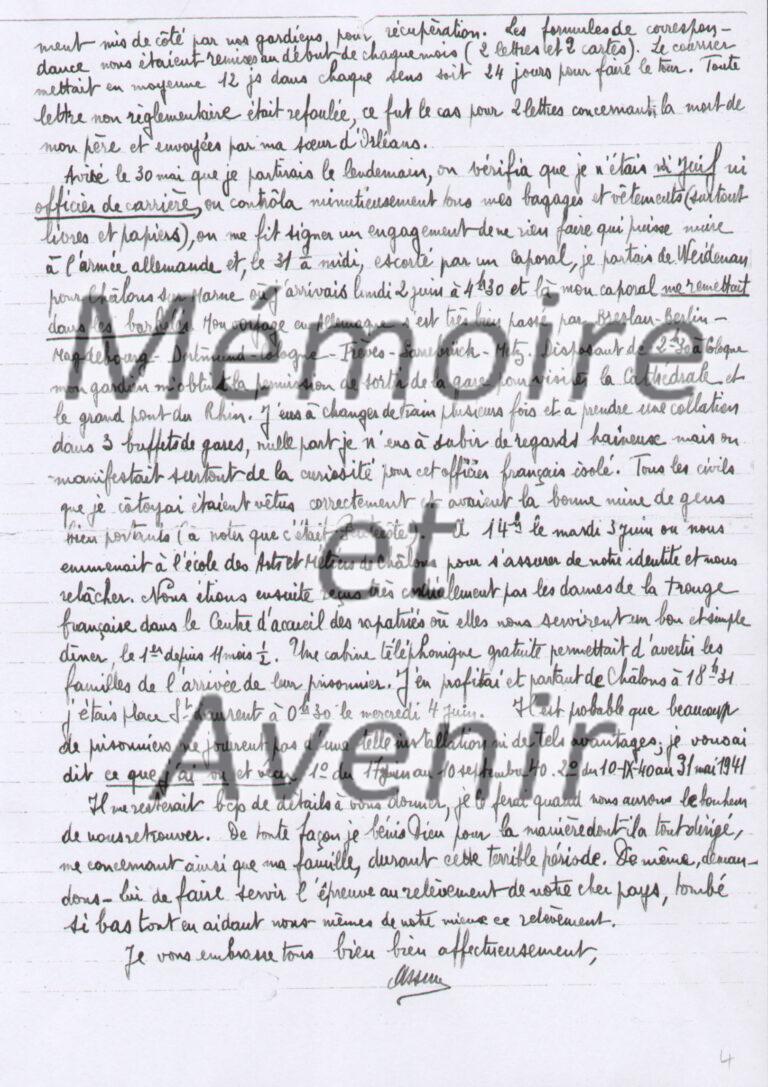 ment mis de côté par nos gardiens pour récupération. Les formules de correspon-
dance nous étaient remises au début de chaque mois (2 lettres et 2 cartes). Le courrier
mettait en moyenne 12 js dans chaque sens soit 24 jours pour faire le tour. Toute
lettre non règlementaire était refoulée, ce fut le cas pour 2 lettres concernant la mort de
mon père et envoyées par ma sœur d'Orléans.
Avisé le 30 mai que je partirais le lendemain, on vérifia que je n'étais ni juif ni
officier de carrière, on contrôla minutieusement tous mes bagages et vêtements (surtout
livres et papiers), on me fit signer un engagement de ne rien faire qui puisse nuire
à l'armée allemande et, le 31 à midi, escorté par un caporal, je partais de Weidenau
pour Châlons sur Marne où j'arrivais lundi 2 juin à 4h30 et là mon caporal me remettait
dans les barbelés. Mon voyage en Allemagne s'est très bien passé par Breslau - Berlin -
Magdebourg - Dortmund - Cologne - Trèves - Sarrebrück - Metz. Disposant de 2h30 à Cologne
mon gardien m'obtint la permission de sortir de la gare pour visiter la Cathédrale et
le grand pont du Rhin. J'eus à changer de train plusieurs fois et à prendre une collation
dans 3 buffets de gares, nulle part je n'eus à subir de regards haineux mais on
manifestait surtout de la curiosité pour cet officier français isolé. Tous les civils
que je côtoyai étaient vêtus correctement et avaient la bonne mine de gens
bien portants (à noter que c'était Pentecôte). A 14h le mardi 3 juin on nous
emmenait à l'école des Arts et Métiers de Châlons pour s'assurer de notre identité et nous
relâcher. Nous étions ensuite reçus très cordialement par les dames de la + rouge
française dans le Centre d'accueil des rapatriés où elles nous servirent un bon et simple
dîner, le 1er depuis 11 mois ½. Une cabine téléphonique gratuite permettait d'avertir les
familles de l'arrivée de leur prisonnier. J'en profitai et partant de Châlons à 18h31
j'étais place St Laurent à 0h30 le mercredi 4 juin. Il est probable que beaucoup
de prisonniers ne jouirent pas d'une telle installation ni de tels avantages; je vous ai
dit ce que j'ai vu et vécu 1° du 17 juin au 10 septembre 40. 2° du 10-IX-40 au 31 mai 1941
Il me resterait bcp de détails à vous donner, je le ferai quand nous aurons le bonheur
de nous retrouver. De toute façon je bénis Dieu pour la manière dont il a tout dirigé,
me concernant ainsi que ma famille, durant cette terrible période. De même, deman-
dons-lui de faire servir l'épreuve au relèvement de notre cher pays, tombé
si bas tout en aidant nous mêmes de notre mieux ce relèvement.
Je vous embrasse tous bien bien affectueusement,
Mémoire
et
Avenir
4